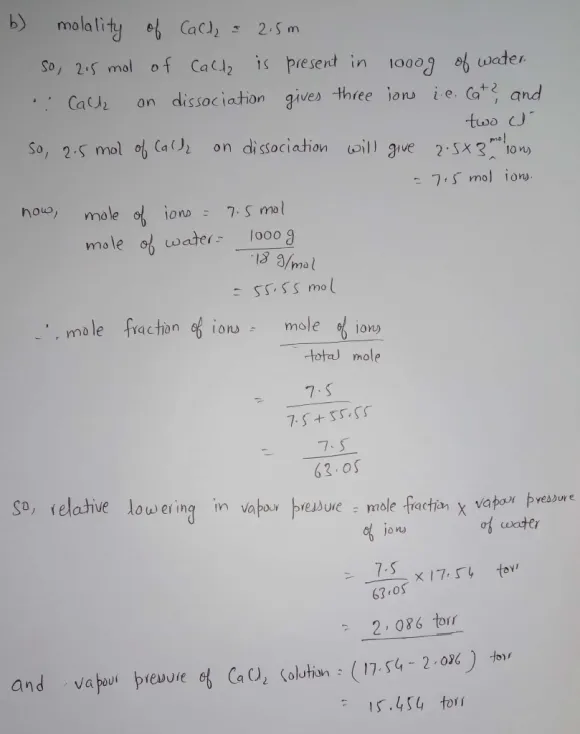 b) molality of CaCl₂ = 2.5 m
So, 2.5 mol of CaCl₂ is present in 1000g of water.
∵ CaCl₂ on dissociation gives three ions i.e. Ca⁺², and
two Cl⁻
So, 2.5 mol of CaCl₂ on dissociation will give 2.5 x 3 mol ions
= 7.5 mol ions.
now, mole of ions = 7.5 mol
mole of water = 1000 g
18 g/mol
= 55.55 mol
∴ mole fraction of ions = mole of ions
total mole
= 7.5
7.5 + 55.55
= 7.5
63.05
So, relative lowering in vapour pressure = mole fraction x vapour pressure
of ions of water
= 7.5
63.05 x 17.54 torr
= 2.086 torr
and vapour pressure of CaCl₂ solution = (17.54 - 2.086) torr
= 15.454 torr